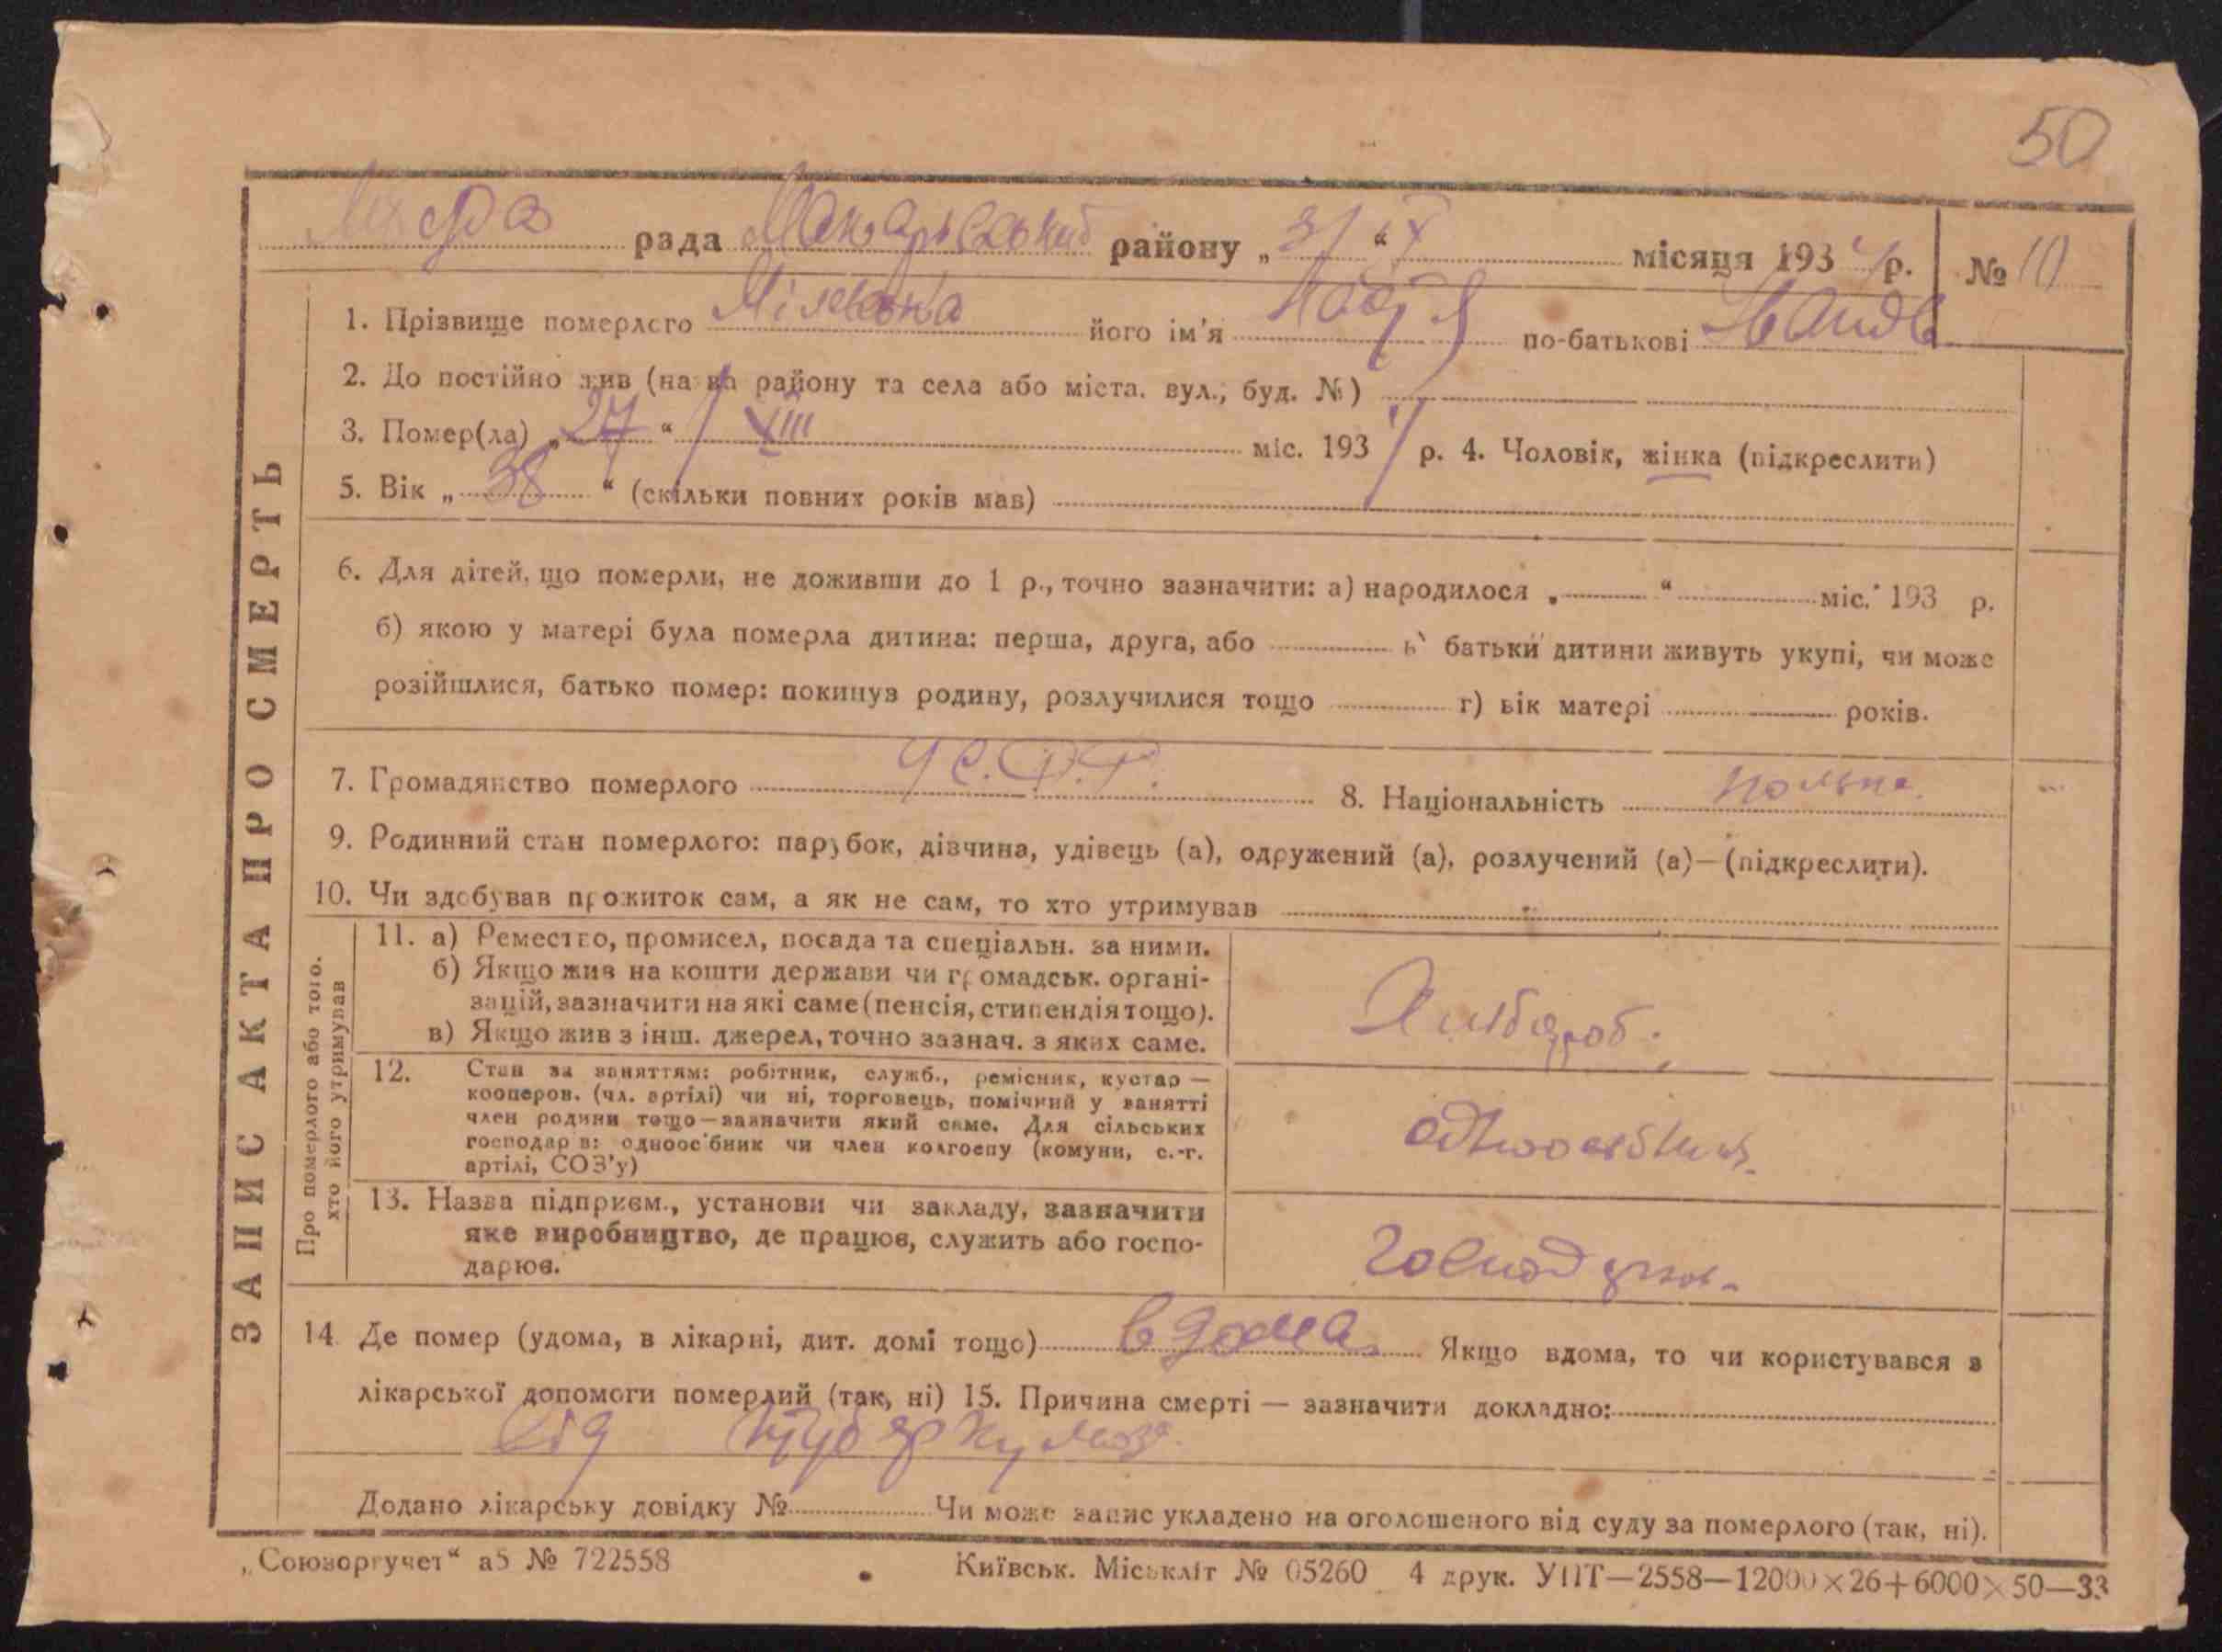 50
рада Макарівський району „31“ ІХ місяця 1934 р. № 10
1. Прізвище померлого його ім'я по-батькові
2. До постійно жив (назва району та села або міста. вул., буд. №)
3. Помер(ла) „27“ VIII міс. 1934 р. 4. Чоловік, жінка (підкреслити)
5. Вік „38“ (скільки повних років мав)
6. Для дітей, що померли, не доживши до 1 р., точно зазначити: а) народилося „ “ міс. 193 р.
б) якою у матері була померла дитина: перша, друга, або в) батьки дитини живуть укупі, чи може
розійшлися, батько помер: покинув родину, розлучилися тощо г) вік матері років.
7. Громадянство померлого УС.Р.Р. 8. Національність полька.
9. Родинний стан померлого: парубок, дівчина, удівець (а), одружений (а), розлучений (а)—(підкреслити).
10. Чи здобував прожиток сам, а як не сам, то хто утримував
ЗАПИС АКТА ПРО СМЕРТЬ
Про померлого або того.
хто його утримував
11. а) Ремество, промисел, посада та спеціальн. за ними.
б) Якщо жив на кошти держави чи громадськ. органі-
зацій, зазначити на які саме (пенсія, стипендія тощо).
в) Якщо жив з інш. джерел, точно зазнач. з яких саме.
Хлібороб.
12. Стан за заняттям: робітник, служб., ремісник, кустар —
кооперов. (чл. артілі) чи ні, торговець, помічний у занятті
член родини тощо—зазначити який саме. Для сільських
господарів: одноосібник чи член колгоспу (комуни, с.-г.
артілі, СОЗ'у)
одноосібник.
13. Назва підприєм., установи чи закладу, зазначити
яке виробництво, де працює, служить або госпо-
дарює.
14. Де помер (удома, в лікарні, дит. домі тощо) вдома. Якщо вдома, то чи користувався з
лікарської допомоги померлий (так, ні) 15. Причина смерті — зазначити докладно:
від туберкульоза.
Додано лікарську довідку № Чи може запис укладено на оголошеного від суду за померлого (так, ні).
„Союзоргучет“ а5 № 722558 Київськ. Міськліт № 05260 4 друк. УПТ—2558—12000×26+6000×50—33